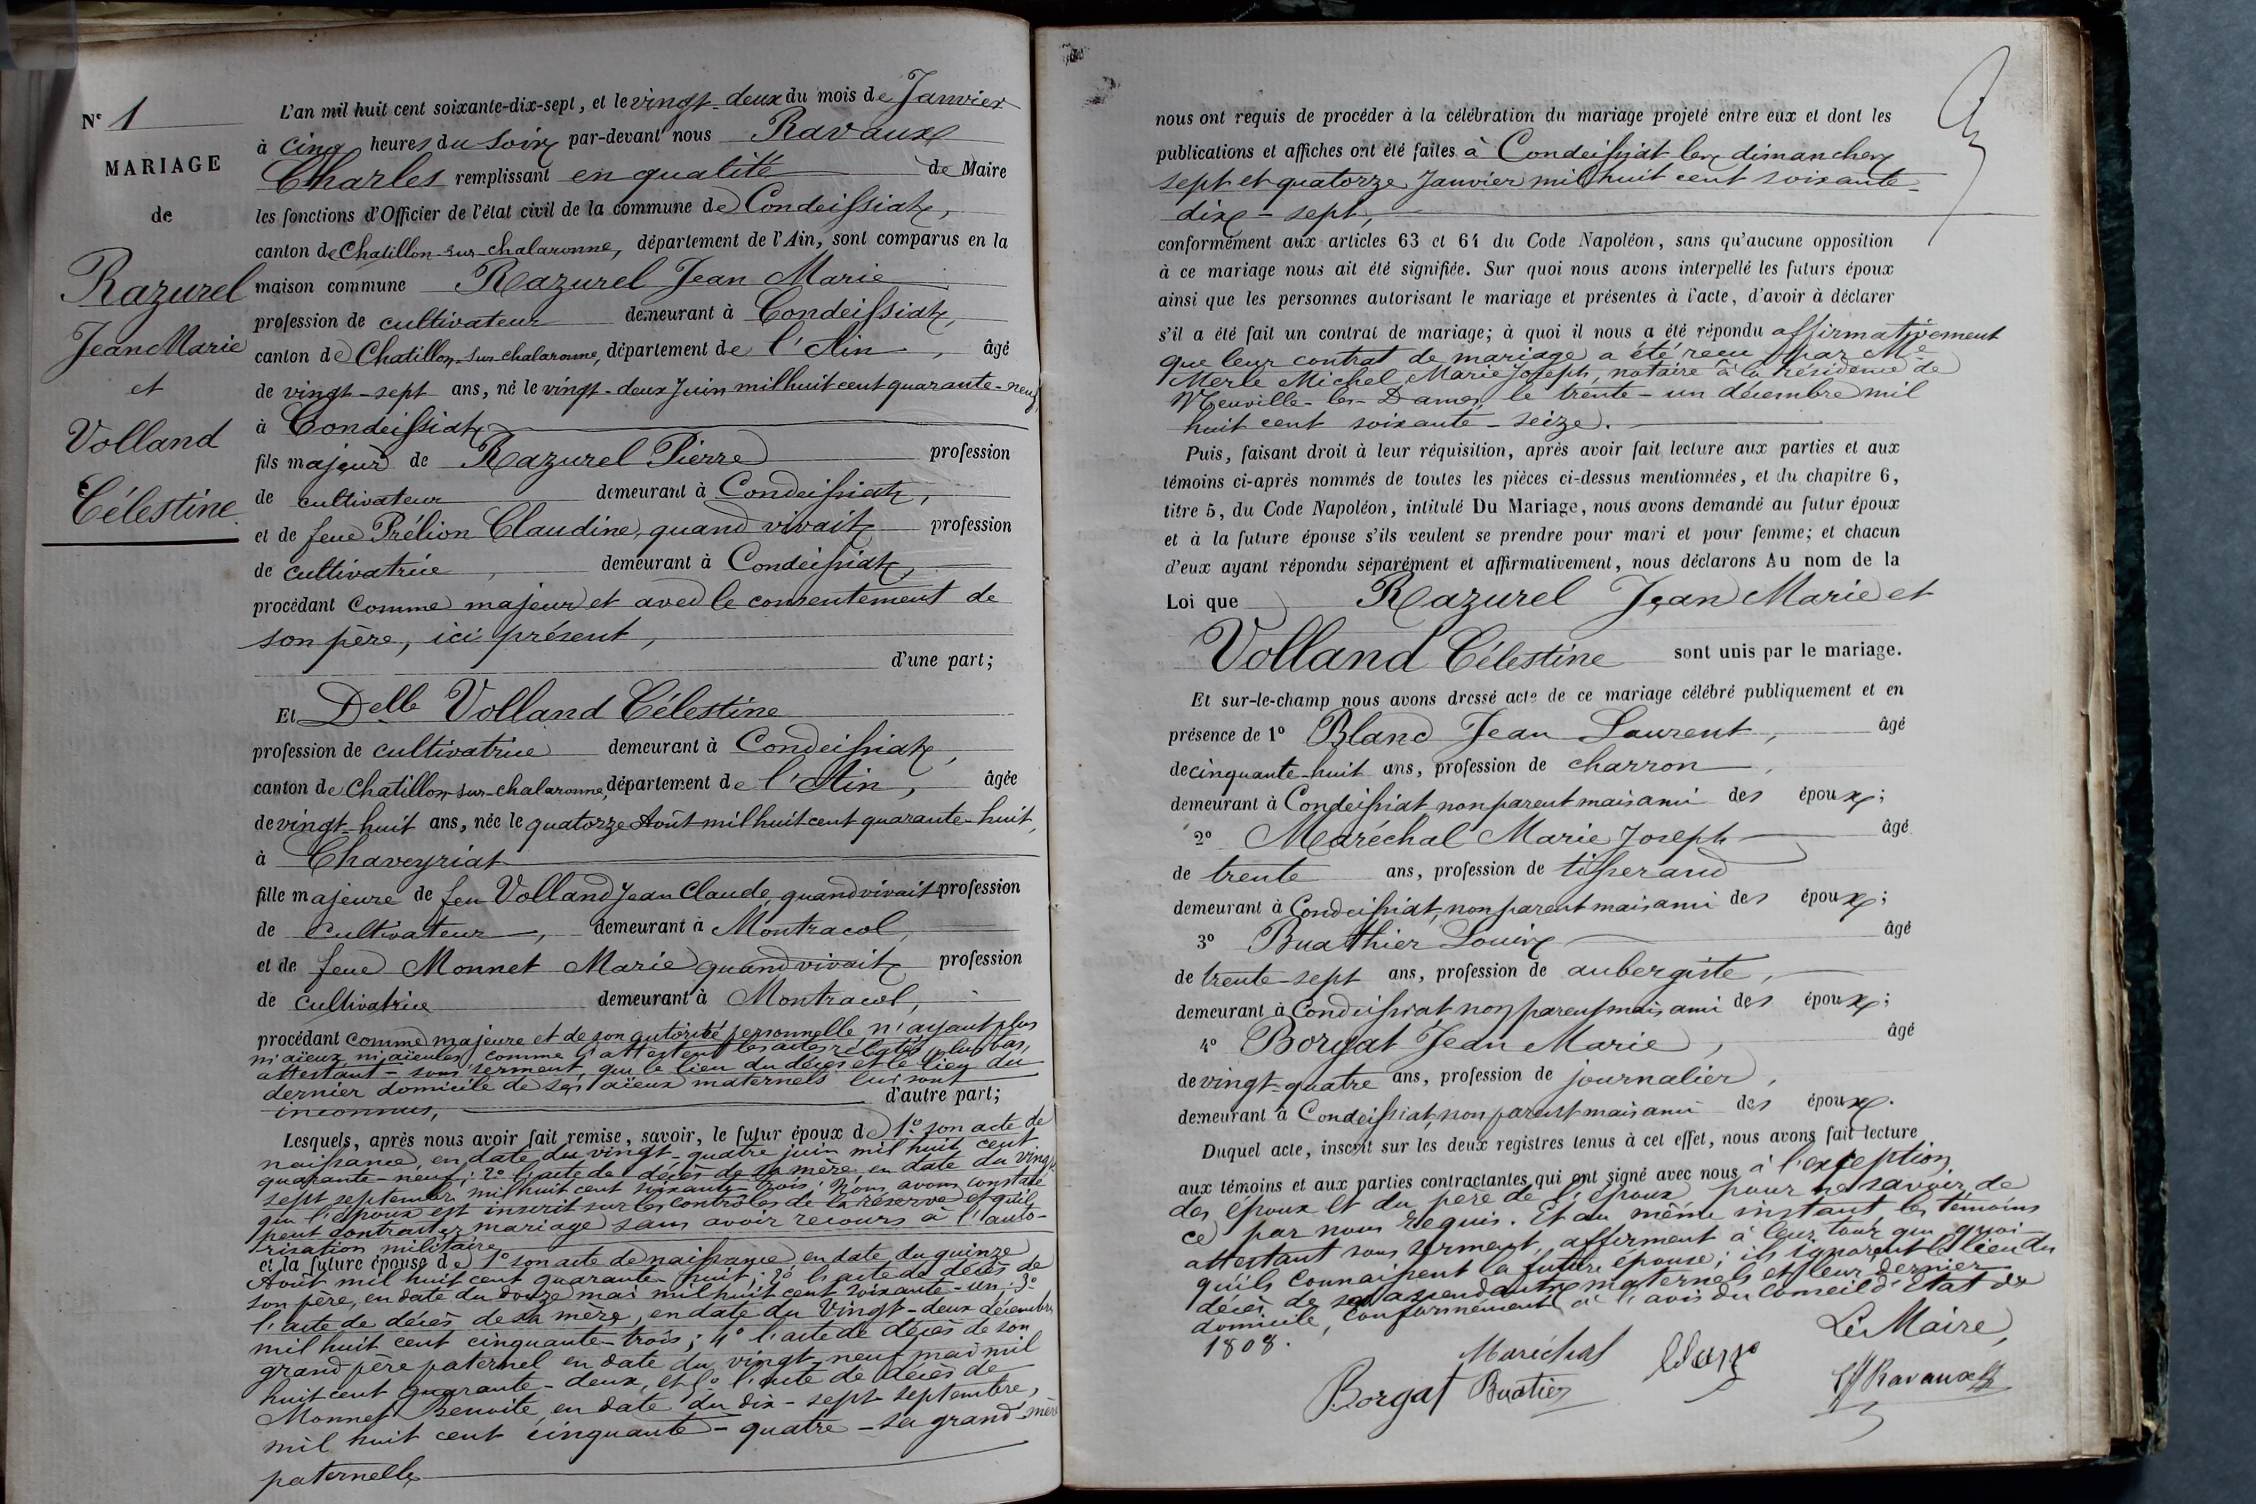 Nº 1
MARIAGE
de
Razurel
Jean Marie
et
Volland
Célestine
L'an mil huit cent soixante-dix-sept, et le vingt-deux du mois de Janvier
à cinq heures du soir par-devant nous Ravaux
Charles remplissant en qualité de Maire
les fonctions d'Officier de l'état civil de la commune de Condeissiat,
canton de Chatillon-sur-Chalaronne, département de l'Ain, sont comparus en la
maison commune Razurel Jean Marie
profession de cultivateur demeurant à Condeissiat,
canton de Chatillon-sur-chalaronne, département de l'Ain, âgé
de vingt-sept ans, né le vingt-deux Juin mil huit cent quarante-neuf,
à Condeissiat
fils majeur de Razurel Pierre profession
de cultivateur demeurant à Condeissiat,
et de feue Prélion Claudine, quand vivait profession
de cultivatrice, demeurant à Condeissiat,
procédant comme majeur et avec le consentement de
son père, ici présent,
d'une part;
Et Delle Volland Célestine
profession de cultivatrice demeurant à Condeissiat,
canton de Chatillon-sur-chalaronne, département de l'Ain, âgée
de vingt-huit ans, née le quatorze Août mil huit cent quarante-huit,
à Chaveyriat
fille majeure de feu Volland Jean Claude, quand vivait profession
de cultivateur, demeurant à Montracol,
et de feue Monnet Marie quand vivait profession
de cultivatrice demeurant à Montracol,
procédant comme majeure et de son autorité personnelle n'ayant plus
ni aïeux ni aïeules, comme l'attestent les actes rélatés plus bas,
attestant sous serment, que le lieu du décès et le lieu du
dernier domicile de ses aïeux maternels lui sont
inconnus, d'autre part;
Lesquels, après nous avoir fait remise, savoir, le futur époux de 1º son acte de
naissance, en date du vingt-quatre juin mil huit cent
quarante-neuf; 2º l'acte de décès de sa mère en date du vingt
sept septembre mil huit cent soixante-trois. Nous avons constaté
que l'époux est inscrit sur les contrôles de la réserve et qu'il
peut contracter mariage sans avoir recours à l'auto-
risation militaire
et la future épouse de 1º son acte de naissance, en date du quinze
Août mil huit cent quarante-huit; 2º l'acte de décès de
son père, en date du douze mai mil huit cent soixante-un; 3º
l'acte de décès de sa mère, en date du vingt-deux décembre
mil huit cent cinquante-trois; 4º l'acte de décès de son
grand père paternel en date du vingt neuf mai mil
huit cent quarante-deux, et 5º l'acte de décès de
Monnet Benoite, en date du dix-sept septembre,
mil huit cent cinquante-quatre - sa grand mère
paternelle
nous ont requis de procéder à la célébration du mariage projeté entre eux et dont les
publications et affiches ont été faites à Condeissiat les dimanches
sept et quatorze Janvier mil huit cent soixante-
dix-sept,
conformément aux articles 63 et 64 du Code Napoléon, sans qu'aucune opposition
à ce mariage nous ait été signifiée. Sur quoi nous avons interpellé les futurs époux
ainsi que les personnes autorisant le mariage et présentes à l'acte, d'avoir à déclarer
s'il a été fait un contrat de mariage; à quoi il nous a été répondu affirmativement
que leur contrat de mariage a été reçu par Me
Merle Michel Marie Joseph, notaire à la résidence de
Neuville-les-Dames, le trente-un décembre mil
huit cent soixante-seize.
Puis, faisant droit à leur réquisition, après avoir fait lecture aux parties et aux
témoins ci-après nommés de toutes les pièces ci-dessus mentionnées, et du chapitre 6,
titre 5, du Code Napoléon, intitulé Du Mariage, nous avons demandé au futur époux
et à la future épouse s'ils veulent se prendre pour mari et pour femme; et chacun
d'eux ayant répondu séparément et affirmativement, nous déclarons Au nom de la
Loi que Razurel Jean Marie et
Volland Célestine sont unis par le mariage.
Et sur-le-champ nous avons dressé acte de ce mariage célébré publiquement et en
présence de 1º Bland Jean Laurent, âgé
de cinquante-huit ans, profession de charron,
demeurant à Condeissiat, non parent mais ami des époux;
2º Maréchal Marie Joseph âgé
de trente ans, profession de tisserand
demeurant à Condeissiat, non parent mais ami des époux;
3º Buathier Louis âgé
de trente-sept ans, profession de aubergiste,
demeurant à Condeissiat non parent mais ami des époux;
4º Borgat Jean Marie, âgé
de vingt-quatre ans, profession de journalier,
demeurant à Condeissiat, non parent mais ami des époux.
Duquel acte, inscrit sur les deux registres tenus à cet effet, nous avons fait lecture
aux témoins et aux parties contractantes qui ont signé avec nous à l'exception
des époux et du père de l'époux pour ne savoir de
ce par nous requis. Et au même instant les témoins
attestant sous serment, affirment à leur tour que quoi-
qu'ils connaissent la future épouse; ils ignorent le lieu du
décès de ses ascendants maternels et leur dernier
domicile, conformément à l'avis du Conseil d'Etat de
1808.
Le Maire,
Maréchal
Borgat Buatier
Ch Ravaux